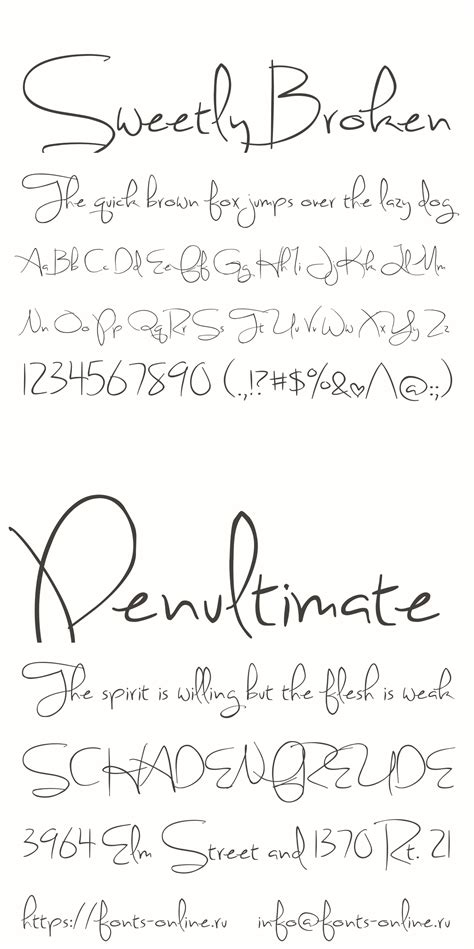 Sweetly Broken
The quick brown fox jumps over the lazy dog
Aa Bb Cc Dd Ee Ff Gg Hh Ii Jj Kk Ll Mm
Nn Oo Pp Qq Rr Ss Tt Uu Vv Ww Xx Yy Zz
1234567890 (.,!?#$%&♥/\@:;)
Penultimate
The spirit is willing but the flesh is weak
SCHADENFREUDE
3964 Elm Street and 1370 Rt. 21
https://fonts-online.ru info@fonts-online.ru